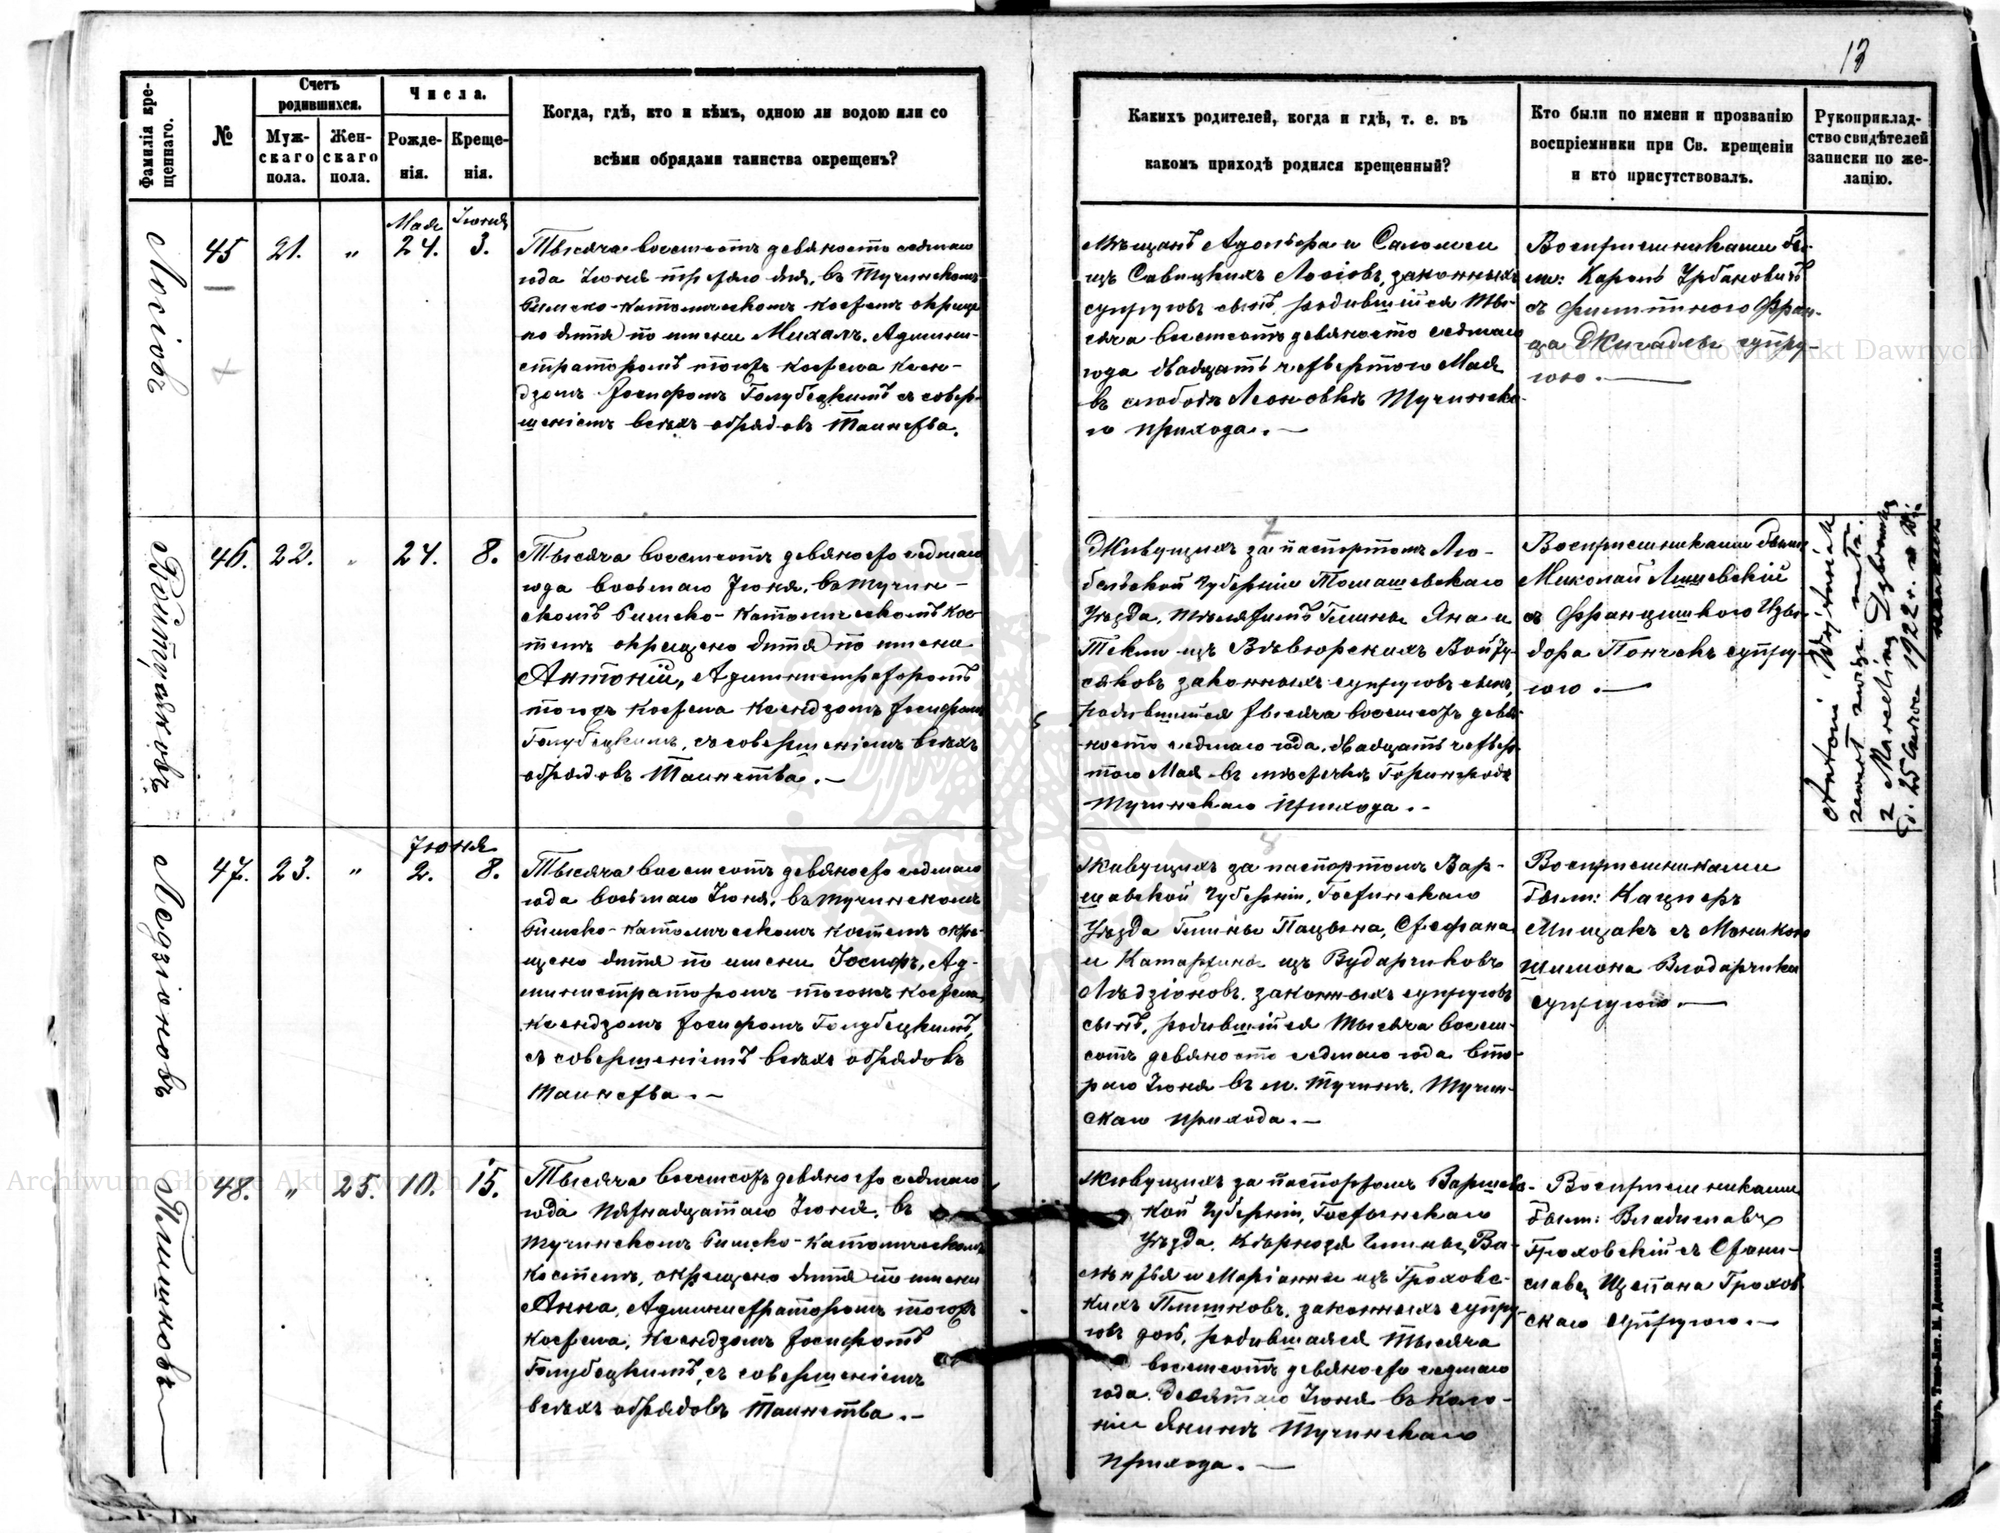 13
Фамилія кре-
щеннаго.
№
Счетъ
родившихся.
Муж-
скаго
пола.
Жен-
скаго
пола.
Числа.
Рожде-
нія.
Креще-
нія.
Когда, гдѣ, кто и кѣмъ, одною ли водою или со
всѣми обрядами таинства окрещенъ?
Какихъ родителей, когда и гдѣ, т. е. въ
какомъ приходѣ родился крещенный?
Кто были по имени и прозванію
воспріемники при Св. крещеніи
и кто присутствовалъ.
Рукоприклад-
ство свидѣтелей
записки по же-
ланію.
Лосіовъ
45
21.
"
Мая
24.
Іюня
3.
Тысяча восемсотъ девяносто седмаго
года Іюня третяго дня, въ Тучинскомъ
Римско-Католическомъ костелѣ окреще
но дитя по имени Михалъ, Админи-
страторомъ тогожъ костела ксен-
дзомъ Іосифомъ Голубецкимъ съ совер-
шеніемъ всѣхъ обрядовъ Таинства.
Мѣщанъ Адольфа и Саломеи
изъ Савицкихъ Лосіовъ, законныхъ
супруговъ сынъ, родившійся Ты-
сяча восемсотъ девяносто седмаго
года двадцать четвертого Мая
въ слободѣ Леоновкѣ Тучинска-
го прихода.
Воспріемниками бы-
ли: Кароль Урбановичъ
съ Фран-
ца супру-
гою.
Войтусяковъ
46.
22.
"
24.
8.
Тысяча восемсотъ девяносто седмаго
года восьмаго Іюня, въ Тучин-
скомъ Римско-Католическомъ кос-
телѣ окрещено дитя по имени
Антоній, Администраторомъ
тогожъ костела ксендзомъ Іосифомъ
Голубецкимъ, съ совершеніемъ всѣхъ
обрядовъ Таинства.
Живущихъ за паспортомъ Лю-
бельской Губерніи Томашевскаго
Уѣзда, Гмины Яна и
Текли изъ Войту-
сяковъ законныхъ супруговъ сынъ,
родившійся тысяча восемсотъ девя-
носто седмаго года, двадцать четвер-
того Мая въ мѣстечкѣ Горингродѣ
Тучинскаго прихода.
Воспріемниками были
Миколай Лишевскій
съ Францишкою Изы-
дора Пончекъ супру-
гою.
Antoni Wojtusiak
zawarł związ. małż.
z Marceliną
d. 25 1922 r. w
Лодзіоновъ
47.
23.
"
Іюня
2.
8.
Тысяча восемсотъ девяносто седмаго
года восьмаго Іюня, въ Тучинскомъ
Римско-Католическомъ костелѣ окре-
щено дитя по имени Іосифъ, Ад-
министраторомъ тогожъ костела
ксендзомъ Іосифомъ Голубецкимъ,
съ совершеніемъ всѣхъ обрядовъ
Таинства.
Живущихъ за паспортомъ Вар-
шавской Губерніи, Гостинскаго
Уѣзда Гмины Пацына, Стефана
и Катаржины изъ Вударчиковъ
Лѣдзіоновъ, законныхъ супруговъ
сынъ, родившійся тысяча восем-
сотъ девяносто седмаго года вто-
раго Іюня въ м. Тучинѣ, Тучин-
скаго прихода.
Воспріемниками
были: Кацперъ
Мищакъ съ Маникою
Шимона Влодарчика
супругою.
Плишковъ
48.
"
25.
10.
15.
Тысяча восемсотъ девяносто седмаго
года пятнадцатаго Іюня, въ
Тучинскомъ Римско-Католическомъ
костелѣ, окрещено дитя по имени
Анна, Администраторомъ тогожъ
костела, ксендзомъ Іосифомъ
Голубецкимъ, съ совершеніемъ
всѣхъ обрядовъ Таинства.
Живущихъ за паспортомъ Варшавс-
кой Губерніи, Гостынскаго
Уѣзда, Гмины, Ва-
и Маріанны изъ Гроховс-
кихъ Плишковъ, законныхъ супру-
говъ дочь, родившаяся тысяча
восемсотъ девяносто седмаго
года, десятаго Іюня въ коло-
ніи Янинѣ Тучинскаго
прихода.
Воспріемниками
были: Владиславъ
Гроховскій съ Стани-
славою Щепана Грохов-
скаго супругою.
Archiwum Główne Akt Dawnych
Archiwum Główne Akt Dawnych